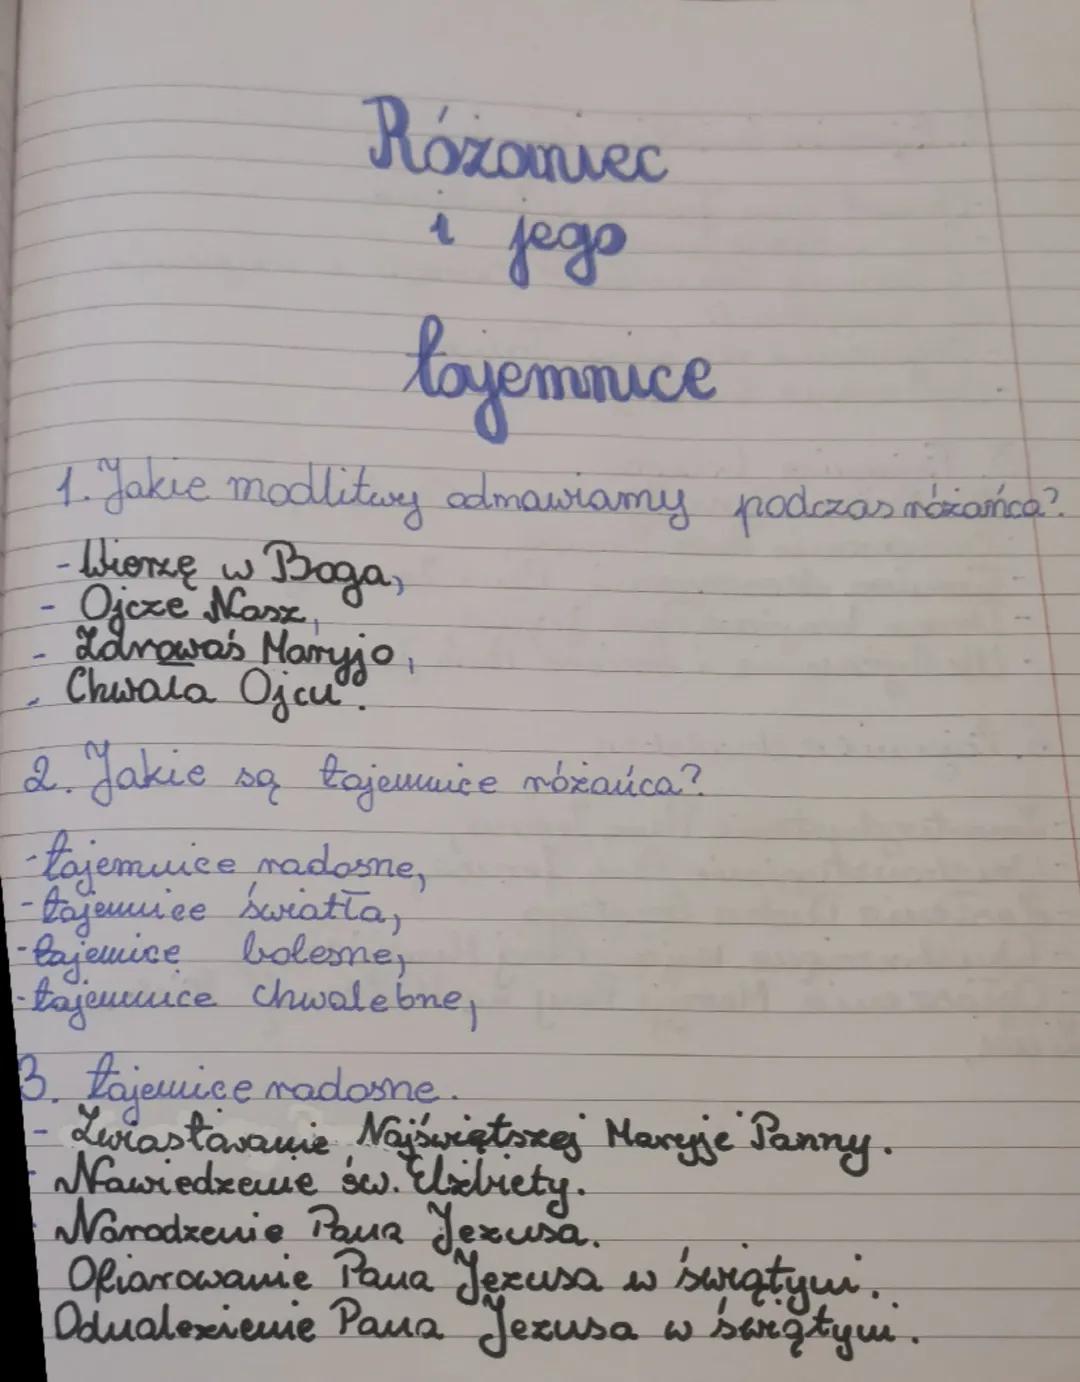 Różaniec
i jego
tajemnice
1. Jakie modlitwy odmawiamy podczas różańca?
- Wierzę w Boga,
- Ojcze Nasz,
- Zdrowaś Maryjo,
- Chwała Ojcu.
2. Jakie są tajemnice różańca?
- tajemnice radosne,
- tajemnice światła,
- tajemice bolesne,
- tajemnice chwalebne,
3. tajemice radosne.
- Zwiastowanie Najświętszej Maryje Panny.
- Nawiedzenie św. Elżbiety.
- Narodzenie Pana Jezusa.
Ofiarowanie Pana Jezusa w świątyni.
Odnalezienie Pana Jezusa w świątyni.